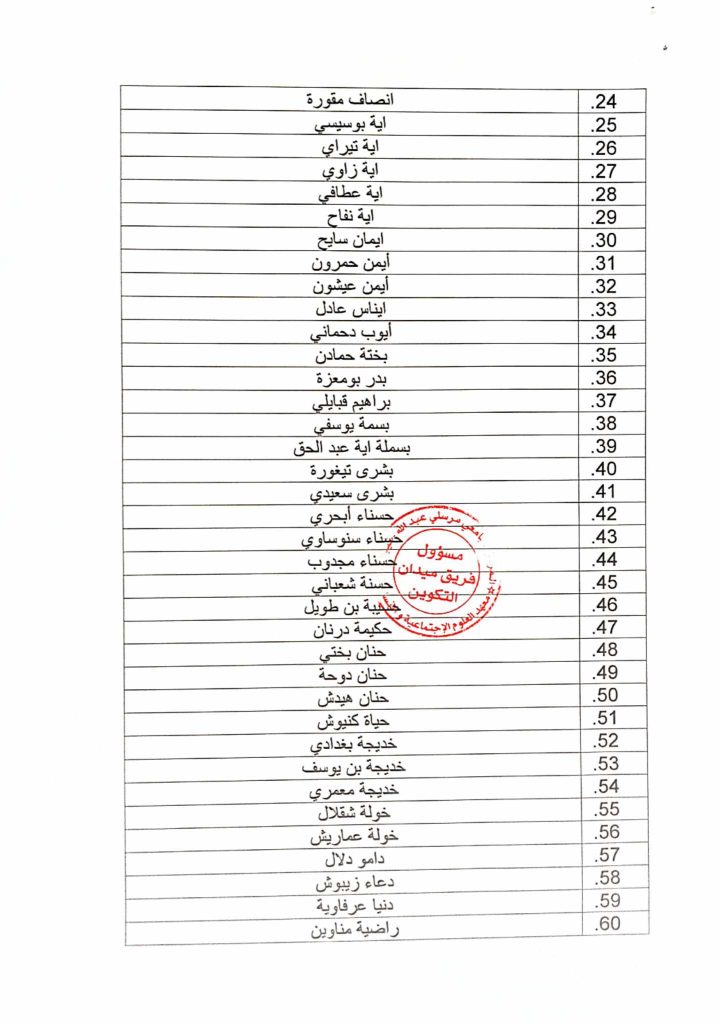 24. انصاف مقورة
25. اية بوسيسي
26. اية تيراي
27. اية زاوي
28. اية عطافي
29. اية نفاح
30. ايمان سايح
31. أيمن حمرون
32. أيمن عيشون
33. ايناس عادل
34. أيوب دحماني
35. بختة حمادن
36. بدر بومعزة
37. براهيم قبايلي
38. بسمة يوسفي
39. بسملة اية عبد الحق
40. بشرى تيغورة
41. بشرى سعيدي
42. حسناء أبحري
43. حسناء سنوساوي
44. حسناء مجدوب
45. حسنة شعباني
46. حسيبة بن طويل
47. حكيمة درنان
48. حنان بختي
49. حنان دوحة
50. حنان هيدش
51. حياة كنيوش
52. خديجة بغدادي
53. خديجة بن يوسف
54. خديجة معمري
55. خولة شقلال
56. خولة عماريش
57. دامو دلال
58. دعاء زيبوش
59. دنيا عرفاوية
60. راضية مناوين
مرسلي عبد الله
مسؤول
فريق ميدان
التكوين
معهد العلوم الإجتماعية و